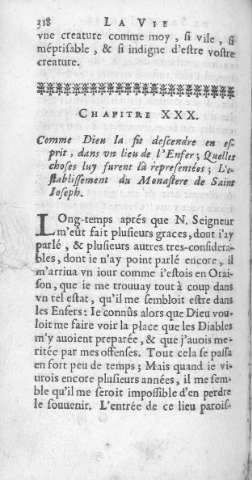 318 LA VIE
vne creature comme moy, si vile, si
méprisable, & si indigne d'estre vostre
creature.
CHAPITRE XXX.
Comme Dieu la fit descendre en es
prit, dans vn lieu de l'Enfer; Quelles
choses luy furent là representées; L'e-
stablissement du Monastere de Saint
Ioseph.
LOng-temps aprés que N. Seigneur
m'eût fait plusieurs graces, dont i'ay
parlé, & plusieurs autres tres-considera-
bles, dont ie n'ay point parlé encore, il
m'arriua vn iour comme i'estois en Orai-
son, que ie me trouuay tout à coup dans
vn tel estat, qu'il me sembloit estre dans
les Enfers: Ie connûs alors que Dieu vou-
loit me faire voir la place que les Diables
m'y auoient preparée, & que j'auois me-
ritée par mes offenses. Tout cela se passa
en fort peu de temps; Mais quand ie vi-
urois encore plusieurs années, il me sem-
ble qu'il me seroit impossible d'en perdre
le souuenir. L'entrée de ce lieu parois-